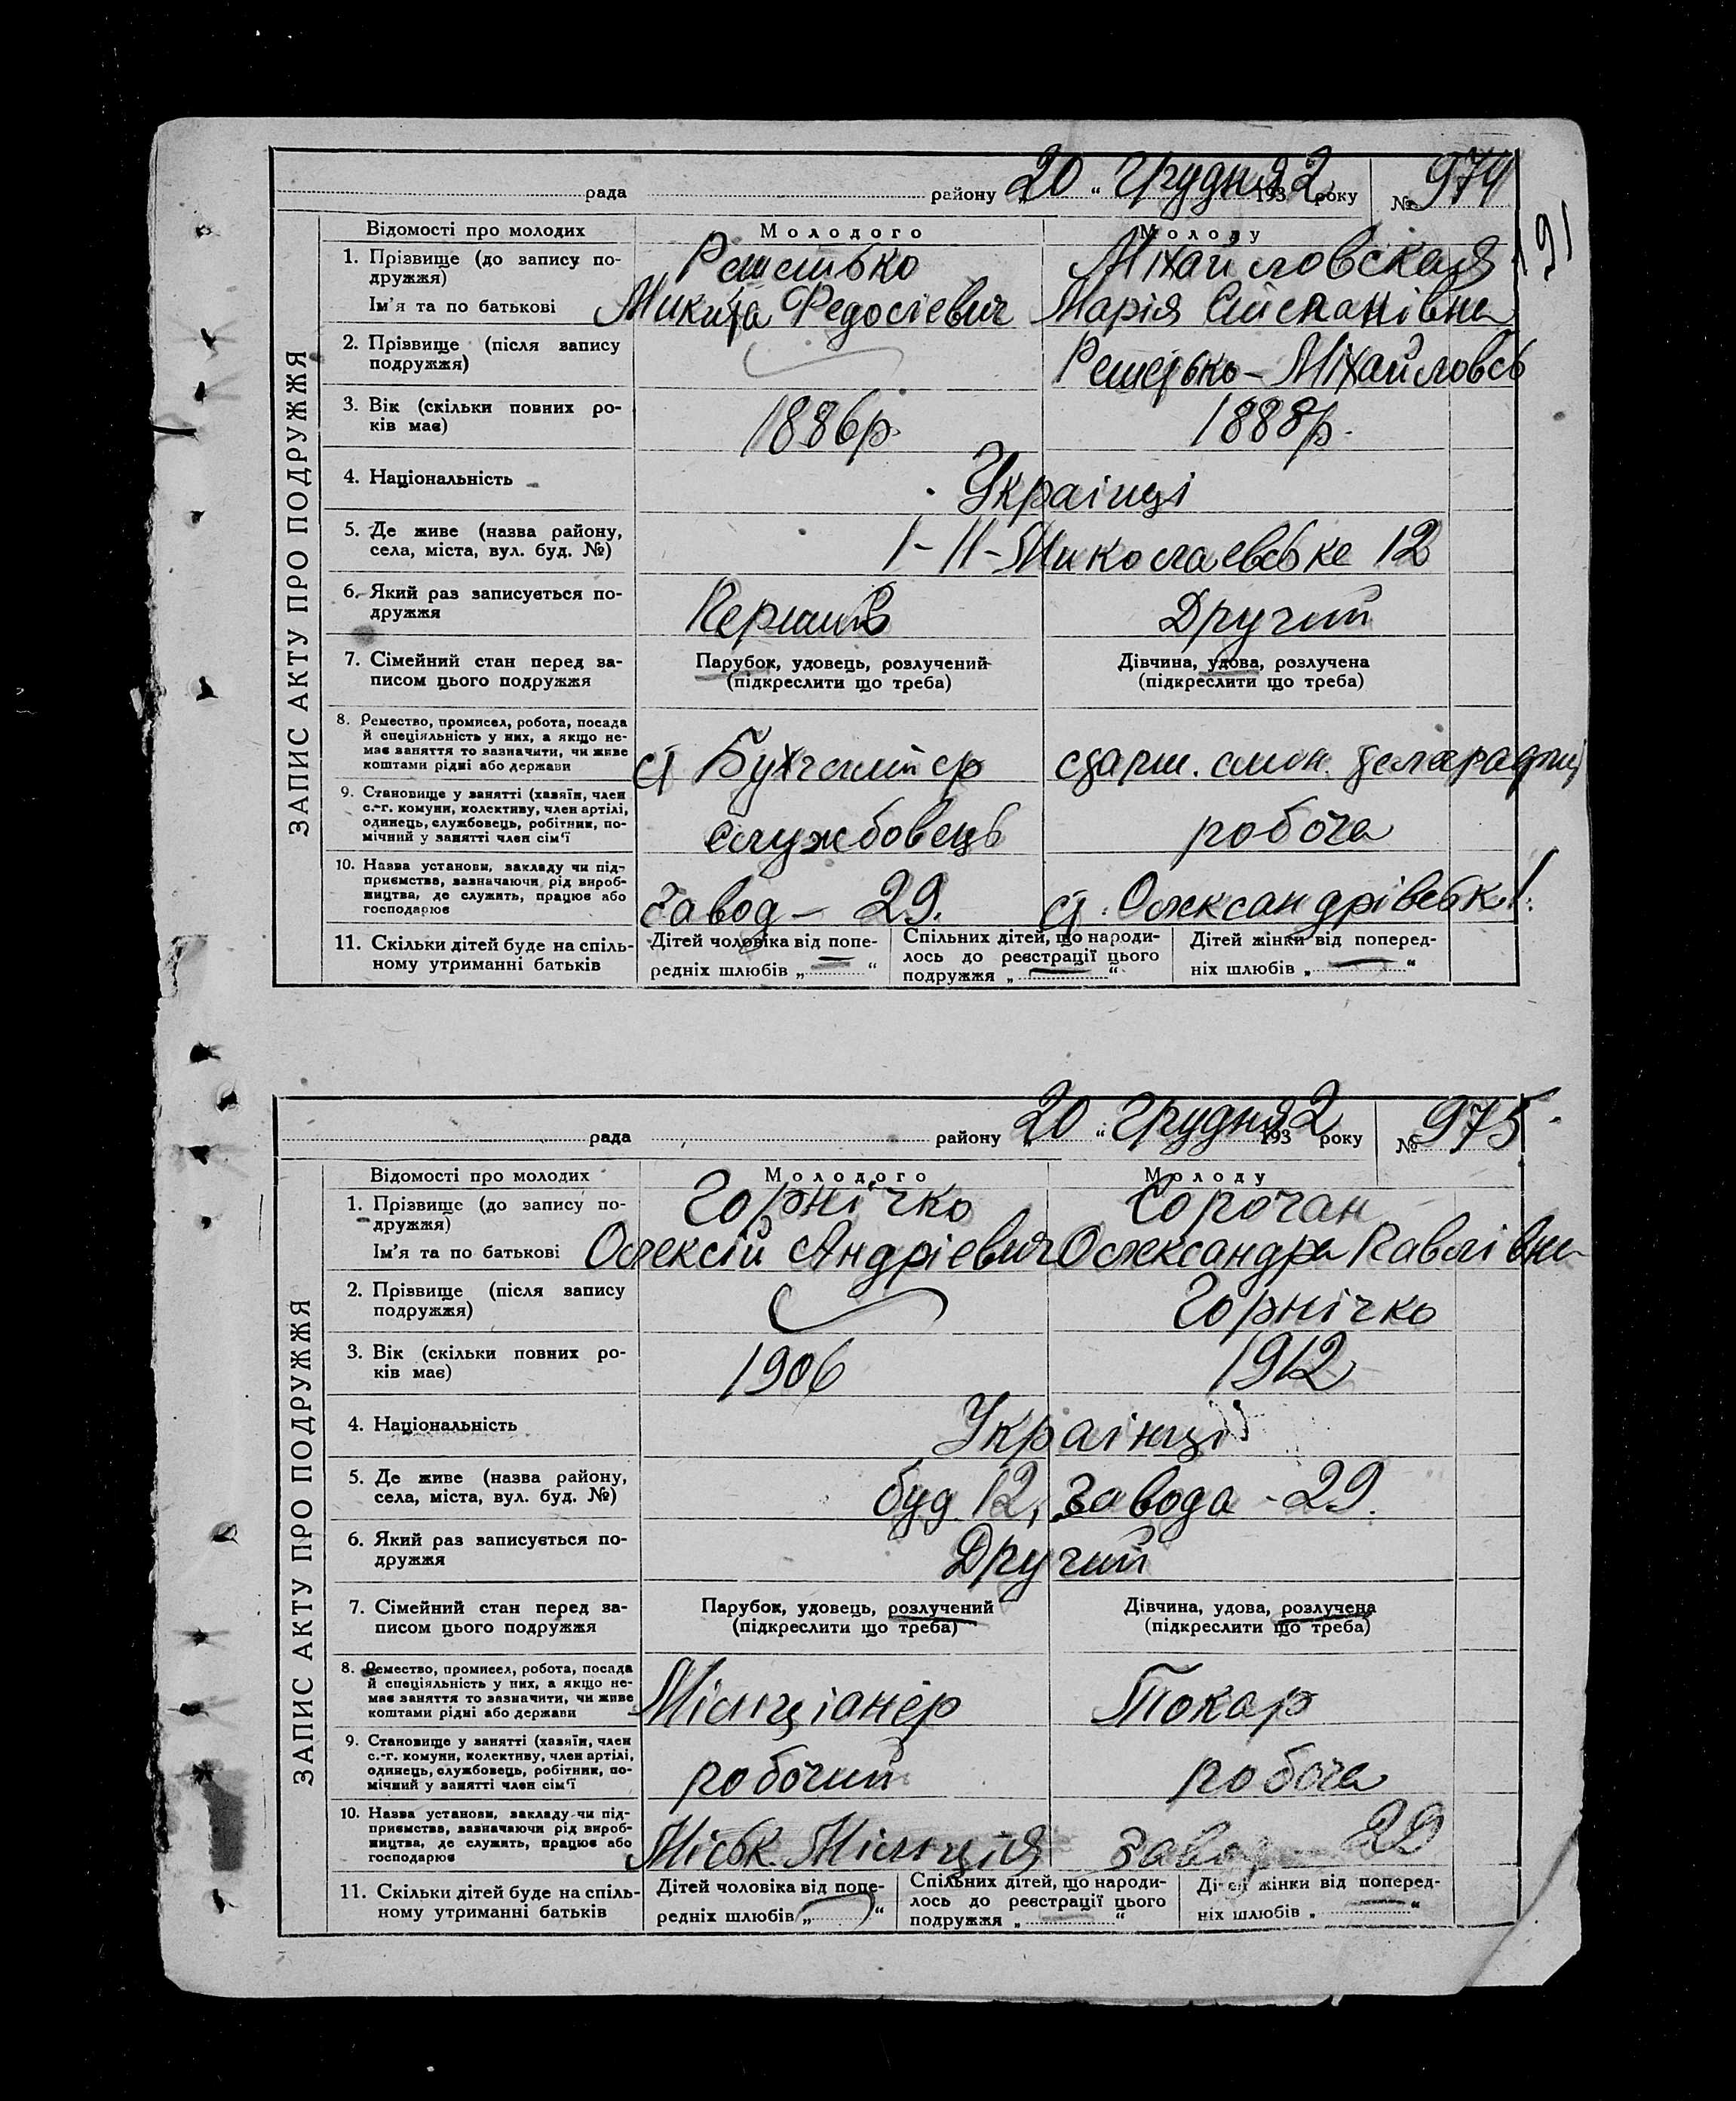 рада районку „20“ Грудня 1932 року № 974
191
ЗАПИС АКТУ ПРО ПОДРУЖЖЯ
Відомості про молодих Молодого Молоду
1. Прізвище (до запису по- Решетько Міхайловская
дружжя)
Ім'я та по батькові Микита Федосієвич Марія Степанівна
2. Прізвище (після запису
подружжя) Решетько-Міхайловсь
3. Вік (скільки повних ро- 1886р. 1888р.
ків має)
4. Національність Українці
5. Де живе (назва району,
села, міста, вул. буд. №) 1-ІІ-Миколаевське 12
6. Який раз записується по- Перший Другий
дружжя
7. Сімейний стан перед за- Парубок, удовець, розлучений Дівчина, удова, розлучена
писом цього подружжя (підкреслити що треба) (підкреслити що треба)
8. Ремество, промисел, робота, посада
й спеціяльність у них, а якщо не-
має заняття то зазначити, чи живе ст Бухгалтер старш.
коштами рідні або держави
9. Становище у занятті (хазяїн, член
с.-г. комуни, колективу, член артілі,
одинець, службовець, робітник, по- службовець робоча
мічний у занятті член сім'ї
10. Назва установи, закладу чи під-
приємства, зазначаючи рід вироб-
ництва, де служить, працює або Завод - 29. ст. Олександрівськ I.
господарює
11. Скільки дітей буде на спіль- Дітей чоловіка від попе- Спільних дітей, що народи- Дітей жінки від поперед-
ному утриманні батьків редніх шлюбів „—“ лось до реєстрації цього ніх шлюбів „—“
подружжя „—“
рада району „20“ Грудня 1932 року № 975
ЗАПИС АКТУ ПРО ПОДРУЖЖЯ
Відомості про молодих Молодого Молоду
1. Прізвище (до запису по- Горнічко Сорочан
дружжя)
Ім'я та по батькові Олексій Андрієвич Олександра Павлівна
2. Прізвище (після запису
подружжя) Горнічко
3. Вік (скільки повних ро- 1906 1912
ків має)
4. Національність Українці
5. Де живе (назва району,
села, міста, вул. буд. №) буд 12, завода - 29.
6. Який раз записується по- Другий
дружжя
7. Сімейний стан перед за- Парубок, удовець, розлучений Дівчина, удова, розлучена
писом цього подружжя (підкреслити що треба) (підкреслити що треба)
8. Ремество, промисел, робота, посада
й спеціяльність у них, а якщо не-
має заняття то зазначити, чи живе Міліціанер Токар
коштами рідні або держави
9. Становище у занятті (хазяїн, член
с.-г. комуни, колективу, член артілі,
одинець, службовець, робітник, по- робочий робоча
мічний у занятті член сім'ї
10. Назва установи, закладу чи під-
приємства, зазначаючи рід вироб-
ництва, де служить, працює або Міськ. Міліція завод - 29
господарює
11. Скільки дітей буде на спіль- Дітей чоловіка від попе- Спільних дітей, що народи- Дітей жінки від поперед-
ному утриманні батьків редніх шлюбів „—“ лось до реєстрації цього ніх шлюбів „—“
подружжя „—“